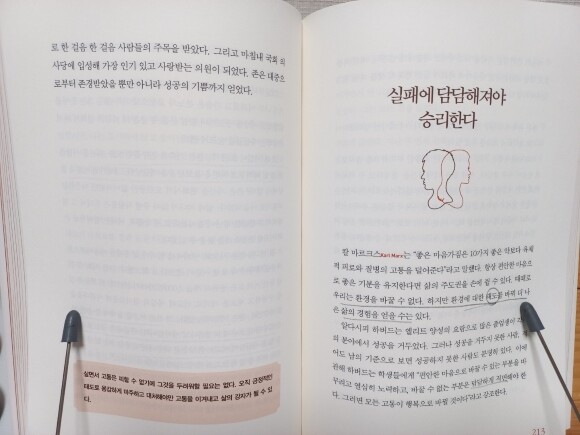 로 한 걸음 한 걸음 사람들의 주목을 받았다. 그리고 마침내 국회 의
사당에 입성해 가장 인기 있고 사랑받는 의원이 되었다. 존은 대중으
로부터 존경받았을 뿐만 아니라 성공의 기쁨까지 얻었다.
살면서 고통은 피할 수 없기에 그것을 두려워할 필요는 없다. 오직 긍정적인
태도로 용감하게 마주하고 대처해야만 고통을 이겨내고 삶의 강자가 될 수 있
다.
실패에 담담해져야
승리한다
칼 마르크스Karl Marx는 "좋은 마음가짐은 10가지 좋은 약보다 육체
적 피로와 질병의 고통을 덜어준다"라고 말했다. 항상 편안한 마음으
로 좋은 기분을 유지한다면 삶의 주도권을 손에 쥘 수 있다. 때때로
우리는 환경을 바꿀 수 없다. 하지만 환경에 대한 태도를 바꿔 더 나
은 삶의 경험을 얻을 수는 있다.
알다시피 하버드는 엘리트 양성의 요람으로 많은 졸업생이 각자
의 분야에서 성공을 거두었다. 그러나 성공을 거두지 못한 사람, 적
어도 남의 기준으로 보면 성공하지 못한 사람도 분명히 있다. 이에
관해 하버드는 학생들에게 "편안한 마음으로 바꿀 수 있는 부분을 바
꾸려고 열심히 노력하고, 바꿀 수 없는 부분은 담담하게 직면해야 한
다. 그러면 모든 고통이 행복으로 바뀔 것이다"라고 강조한다.
213